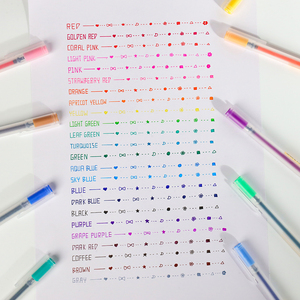 RED
GOLDEN RED
CORAL PINK
LIGHT PINK
PINK
STRAWBERRY RED
ORANGE
APRICOT YELLOW
YELLOW
LIGHT GREEN
LEAF GREEN
TURQUOISE
GREEN
AQUA BLUE
SKY BLUE
BLUE
DARK BLUE
BLACK
PURPLE
GRAPE PURPLE
DARK RED
COFFEE
BROWN
GRAY